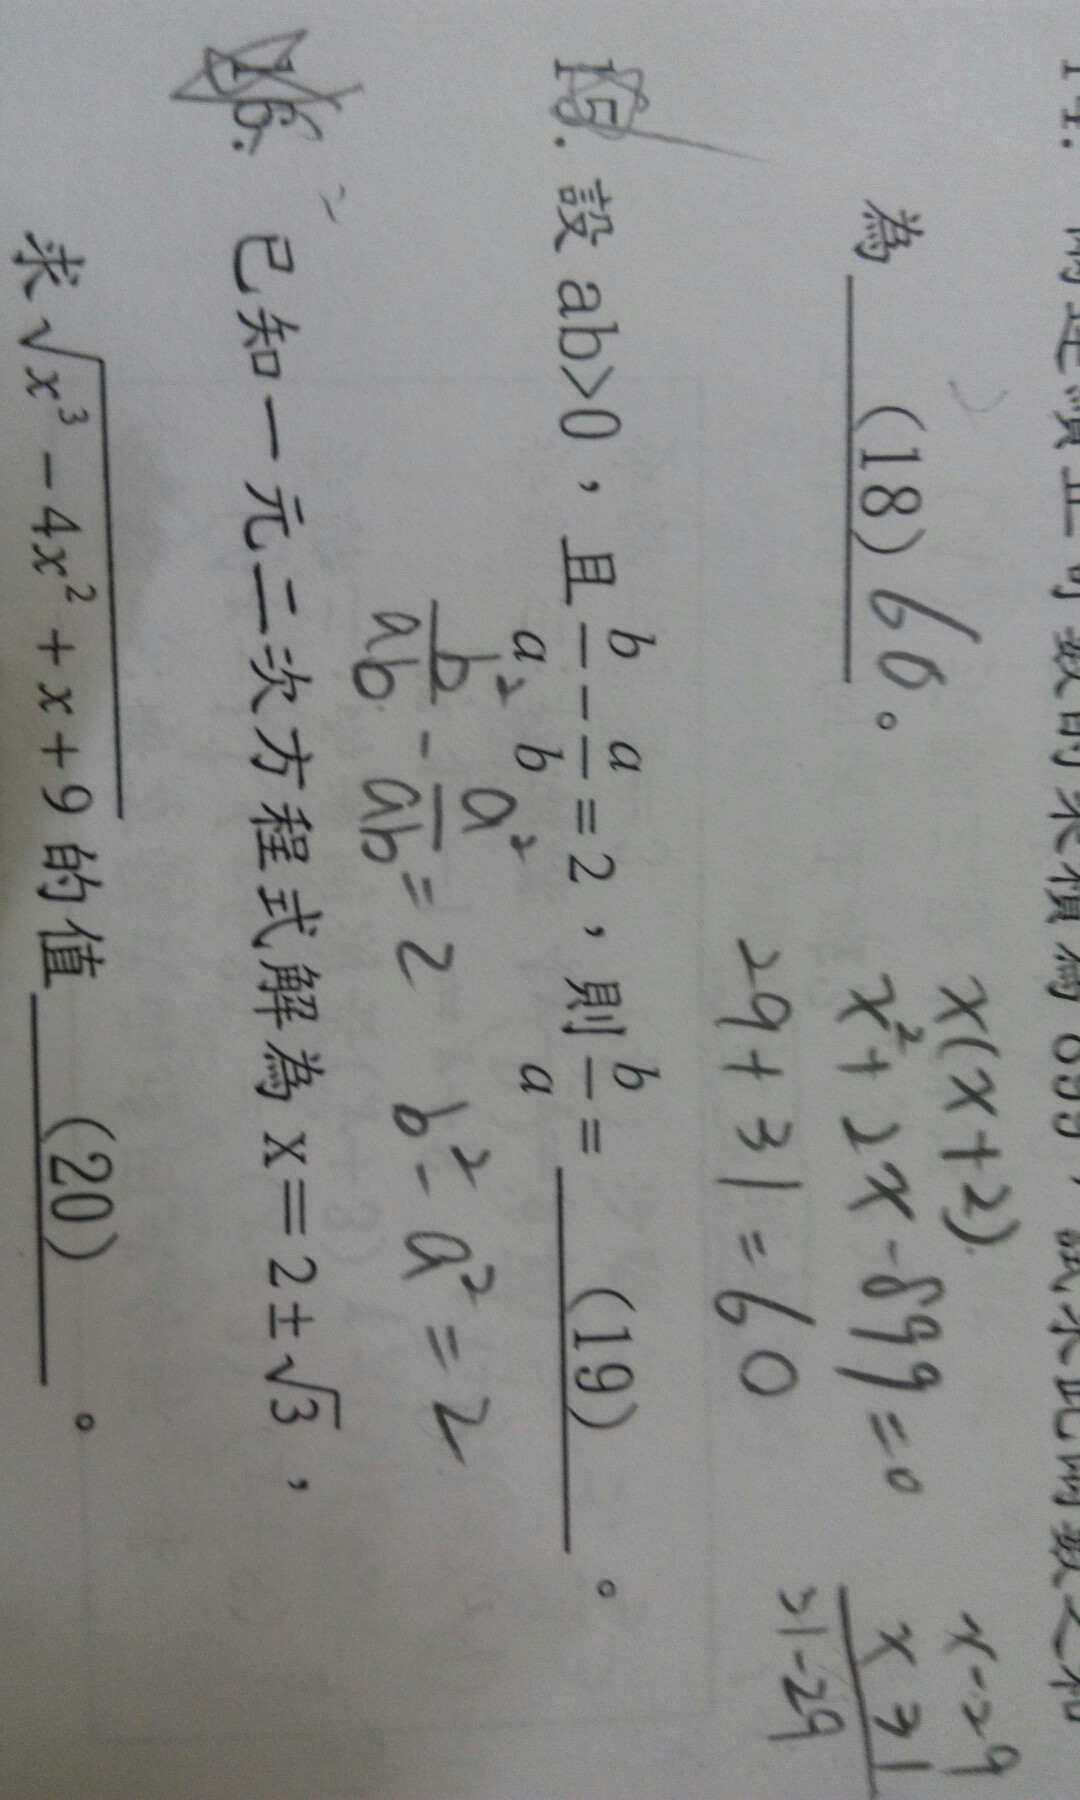 14. 兩連續正奇數的乘積為899，試求此兩數之和
為 (18) 60 。
x(x+2)
x²+2x-899=0
29+31=60
x-29
x 31
31-29
15. 設 ab>0，且 b/a - a/b = 2，則 b/a = (19) 。
b²/ab - a²/ab = 2
b²-a²=2
16. 已知一元二次方程式解為 x=2±√3，
求√(x³-4x²+x+9) 的值 (20) 。